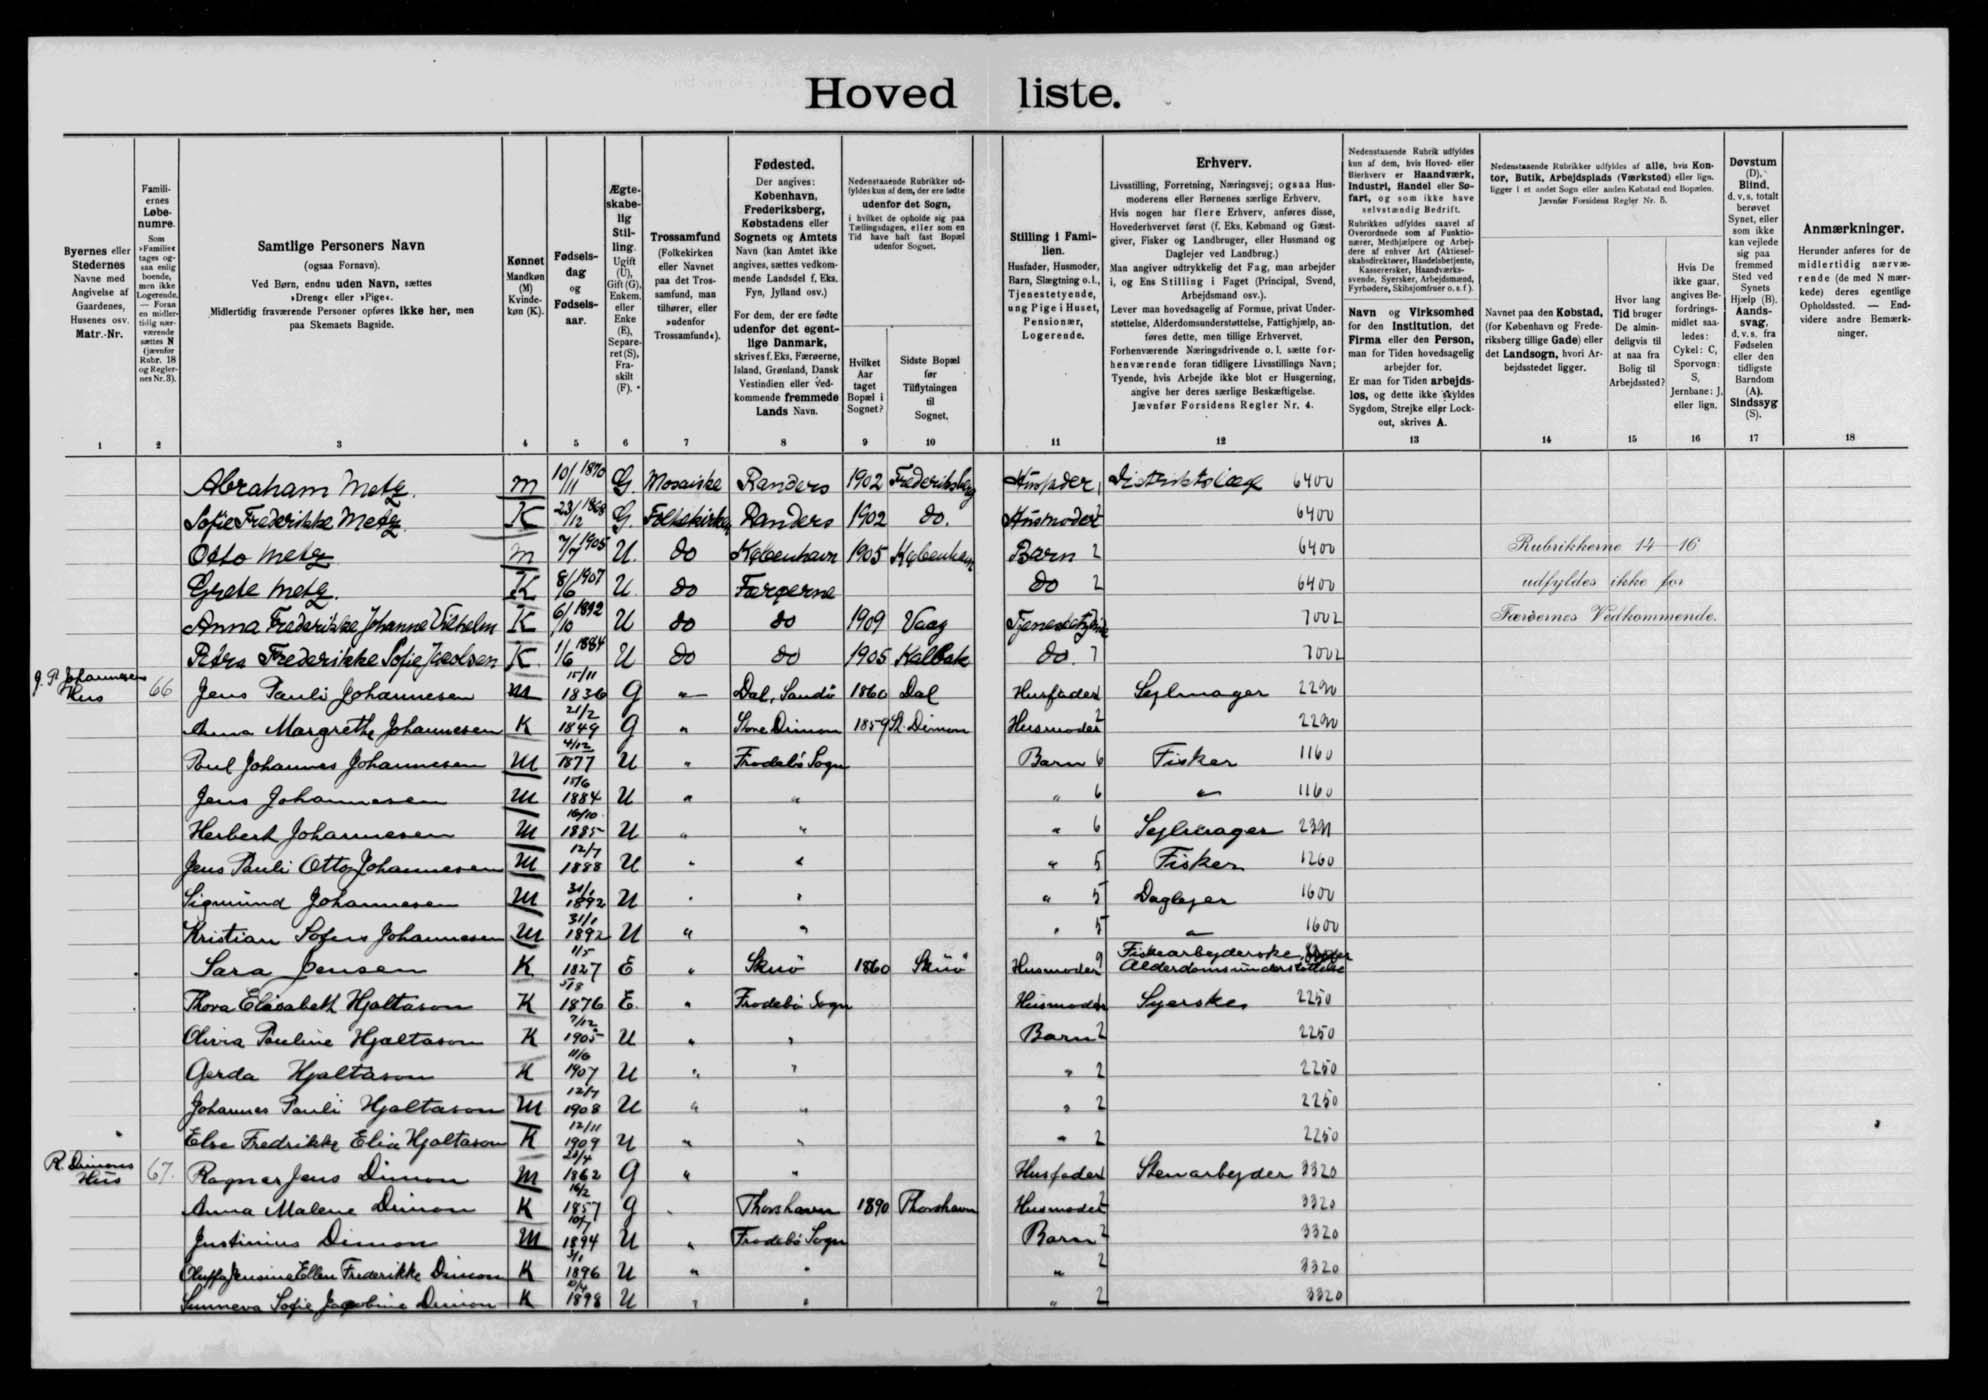 Hovedliste.
Byernes eller Stedernes Navne med Angivelse af Gaardenes, Husenes osv. Matr.-Nr.
Familiernes Løbenumre. Som »Familie« tages ogsaa enlig boende, men ikke Logerende. — Foran en midlertidig nærværende sættes N (jævnfør Rubr. 18 og Reglernes Nr. 3).
Samtlige Personers Navn (ogsaa Fornavn). Ved Børn, endnu uden Navn, sættes »Dreng« eller »Pige«. Midlertidig fraværende Personer opføres ikke her, men paa Skemaets Bagside.
Kønnet Mandkøn (M) Kvindekøn (K).
Fødselsdag og Fødselsaar.
Ægteskabelig Stilling. Ugift (U), Gift (G), Enkem. eller Enke (E), Separeret (S), Fraskilt (F).
Trossamfund (Folkekirken eller Navnet paa det Trossamfund, man tilhører, eller »udenfor Trossamfund«).
Fødested. Der angives: København, Frederiksberg, Købstadens eller Sognets og Amtets Navn (kan Amtet ikke angives, sættes vedkommende Landsdel f. Eks. Fyn, Jylland osv.) For dem, der ere fødte udenfor det egentlige Danmark, skrives f. Eks. Færøerne, Island, Grønland, Dansk Vestindien eller vedkommende fremmede Lands Navn.
Nedenstaaende Rubrikker udfyldes kun af dem, der ere fødte udenfor det Sogn, i hvilket de opholde sig paa Tællingsdagen, eller som en Tid have haft fast Bopæl udenfor Sognet.
Hvilket Aar taget Bopæl i Sognet?
Sidste Bopæl før Tilflytningen til Sognet.
Stilling i Familien. Husfader, Husmoder, Barn, Slægtning o. l., Tjenestetyende, ung Pige i Huset, Pensionær, Logerende.
Erhverv. Livsstilling, Forretning, Næringsvej; ogsaa Husmoderens eller Børnenes særlige Erhverv. Hvis nogen har flere Erhverv, anføres disse, Hovederhvervet først (f. Eks. Købmand og Gæstgiver, Fisker og Landbruger, eller Husmand og Daglejer ved Landbrug.) Man angiver udtrykkelig det Fag, man arbejder i, og Ens Stilling i Faget (Principal, Svend, Arbejdsmand osv.). Lever man hovedsagelig af Formue, privat Understøttelse, Alderdomsunderstøttelse, Fattighjælp, anføres dette, men tillige Erhvervet. Forhenværende Næringsdrivende o. l. sætte forhenværende foran tidligere Livsstillings Navn; Tyende, hvis Arbejde ikke blot er Husgerning, angive her deres særlige Beskæftigelse. Jævnfør Forsidens Regler Nr. 4.
Nedenstaaende Rubrik udfyldes kun af dem, hvis Hoved- eller Bierhverv er Haandværk, Industri, Handel eller Søfart, og som ikke have selvstændig Bedrift.
Rubrikken udfyldes saavel af Overordnede som af Funktionærer, Medhjælpere og Arbejdere af enhver Art (Aktieselskabsdirektører, Handelsbetjente, Kasserersker, Haandværkssvende, Syersker, Arbejdsmænd, Fyrbødere, Skibsjomfruer o. s. f.).
Navn og Virksomhed for den Institution, det Firma eller den Person, man for Tiden hovedsagelig arbejder for. Er man for Tiden arbejdsløs, og dette ikke skyldes Sygdom, Strejke eller Lockout, skrives A.
Nedenstaaende Rubrikker udfyldes af alle, hvis Kontor, Butik, Arbejdsplads (Værksted) eller lign. ligger i et andet Sogn eller anden Købstad end Bopælen. Jævnfør Forsidens Regler Nr. 5.
Navnet paa den Købstad, (for København og Frederiksberg tillige Gade) eller det Landsogn, hvori Arbejdsstedet ligger.
Hvor lang Tid bruger De almindeligvis til at naa fra Bolig til Arbejdssted?
Hvis De ikke gaar, angives Befordringsmidlet saaledes: Cykel: C, Sporvogn: S, Jernbane: J, eller lign.
Døvstum (D), Blind, d. v. s. totalt berøvet Synet, eller som ikke kan vejlede sig paa fremmed Sted ved Synets Hjælp (B). Aandssvag, d. v. s. fra Fødselen eller den tidligste Barndom (A). Sindssyg (S).
Anmærkninger. Herunder anføres for de midlertidig nærværende (de med N mærkede) deres egentlige Opholdssted. — Endvidere andre Bemærkninger.
1 2 3 4 5 6 7 8 9 10 11 12 13 14 15 16 17 18
Abraham Metz. M 10/11 1870 G. Mosaiske Randers 1902 Frederiksberg Husfader 1 Distriktslæge 6400
Sofie Frederikke Metz. K 23/12 1868 G. Folkekirken Randers 1902 do. Husmoder 2 6400
Otto Metz M 7/7 1905 U. do København 1905 København Barn 2 6400 Rubrikkerne 14—16
Grete Metz. K 8/6 1907 U. do Færøerne do 2 6400 udfyldes ikke for
Anna Frederikke Johanne Vilhelm K 6/10 1892 U do do 1909 Vaag Tjenestetyende 7 7002 Færøernes Vedkommende.
Petra Frederikke Sofie Jacobsen K. 1/6 1884 U do do 1905 Kalbak do. 7 7002
J. P. Johannesens Hus 66 Jens Pauli Johannesen M 15/11 1836 G " Dal, Sandø 1860 Dal Husfader 1 Sejlmager 2290
Anna Margrethe Johannesen K 21/2 1849 G " Store Dimon 1859 St. Dimon Husmoder 2 2290
Poul Johannes Johannesen M 4/12 1877 U " Frodebø Sogn Barn 6 Fisker 1160
Jens Johannesen M 15/6 1884 U " " " 6 " 1160
Herbert Johannesen M 16/10 1885 U " " " 6 Sejlmager 2391
Jens Pauli Otto Johannesen M 12/7 1888 U " " " 5 Fisker 1260
Sigmund Johannesen M 31/1 1892 U " " " 5 Daglejer 1600
Kristian Sofus Johannesen M 31/1 1892 U " " " 5 " 1600
Sara Jensen K 1/5 1827 E " Skuø 1860 Skuø Husmoder 9 Fiskearbejderske, Alderdomsunderstøttelse
Thora Elisabeth Hjaltason K 5/8 1876 E. " Frodebø Sogn Husmoder 1 Syerske 2250
Olivia Pauline Hjaltason K 7/12 1905 U " " Barn 2 2250
Gerda Hjaltason K 11/6 1907 U " " " 2 2250
Johannes Pauli Hjaltason M 12/7 1908 U " " " 2 2250
Else Fredrikke Elia Hjaltason K 12/11 1909 U " " " 2 2250
R. Dimons Hus 67. Ragner Jens Dimon M 20/4 1862 G " " Husfader 1 Stenarbejder 3320
Anna Malene Dimon K 16/2 1857 G " Thorshavn 1890 Thorshavn Husmoder 2 3320
Justinus Dimon M 10/7 1894 U " Frodebø Sogn Barn 2 3320
Oluffa Jensine Ellen Frederikke Dimon K 3/1 1896 U " " " 2 3320
Sunneva Sofie Jacobine Dimon K 1898 U " " " 2 3320